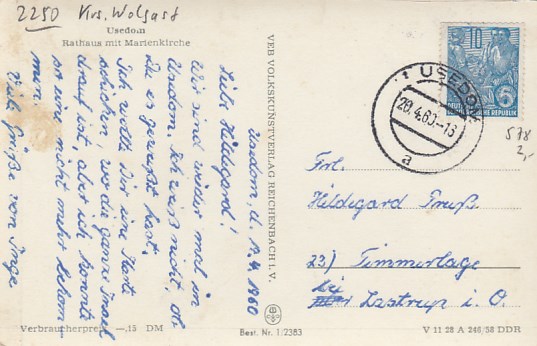 2250 Krs. Wolgast
Usedom
Rathaus mit Marienkirche
Usedom, d. 1.4.1960
Liebe Hildegard!
Wir sind wieder mal in
Usedom. Ich weiß nicht, ob
Du es gewußt hast.
Ich wollte Dir eine Karte
schicken, wo die ganze Insel
drauf ist, aber ich konnte
so eine nicht mehr bekom-
men.
Viele Grüße von Inge
Verbraucherpreis —,15 DM
VEB VOLKSKUNSTVERLAG REICHENBACH I. V.
Best. Nr. 1/2383
USEDOM
20.4.60.-16
a
DEUTSCHE DEMOKRATISCHE REPUBLIK
5
578
2,-
Frl.
Hildegard Preuß
23) Timmerlage
bei Lastrup i. O.
V 11 28 A 246/58 DDR